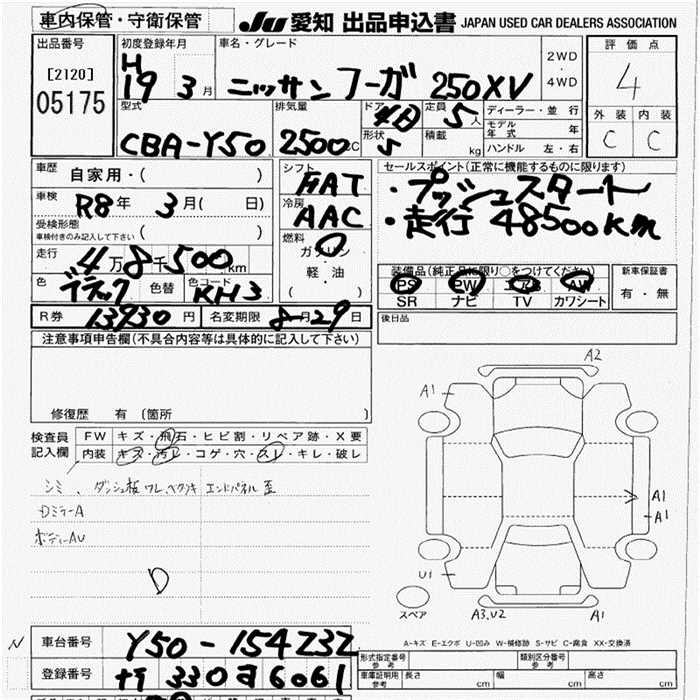 車内保管・守衛保管
JU 愛知 出品申込書 JAPAN USED CAR DEALERS ASSOCIATION
出品番号
[2120]
05175
初度登録年月
H
19 3月
車名・グレード
ニッサン フーガ 250XV
2WD
・
4WD
評価点
4
外装 内装
C C
型式
CBA-Y50
排気量
2500CC
ドア
4D
形状
5
定員
5人
積載
kg
ディーラー・並行
モデル年式 年
ハンドル 左・右
車歴
自家用・( )
車検
R8年 3月( 日)
受検形態
車検付きのみ記入して下さい ( )
走行
4万8千500km
色
ブラック
色替
色コード
KH3
シフト
FAT
冷房
AAC
燃料
ガソリン
軽・油
( )
セールスポイント(正常に機能するものに限ります)
・プッシュスタート
・走行 48500km
装備品(純正品に限り○をつけてください)
PS PW エアB AW
SR ナビ TV カワシート
新車保証書
有・無
R券 13930円 名変期限 8月29日
後日品
注意事項申告欄(不具合内容等は具体的に記入して下さい)
修復歴 有 (箇所 )
検査員
記入欄
FW キズ・飛石・ヒビ割・リペア跡・X要
内装 キズ・汚レ・コゲ・穴・スレ・キレ・破レ
シミ、ダッシュ板ワレ、ベタツキ エンドパネル歪
DミラーA
ボディーAU
D
A2
A1
A1
A1
U1
スペア
A3.U2
A1
A-キズ E-エクボ U-凹み W-補修跡 S-サビ C-腐食 XX-交換済
N
車台番号 Y50-154232
登録番号 330 6061
形式指定番号
参考
類別区分番号
参考
車庫証明用
参考
長さ cm 幅 cm 高さ cm